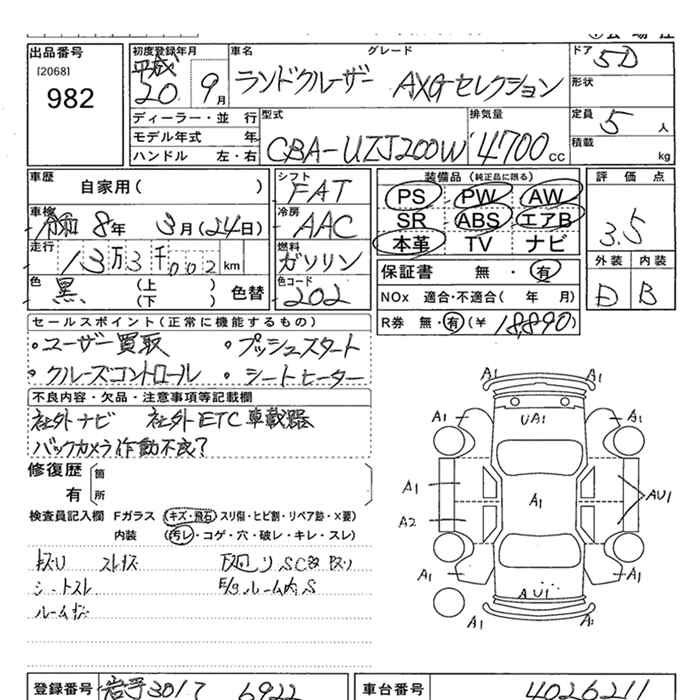 出品番号
[2068]
982
初度登録年月
平成
20 9月
車名 グレード
ランドクルーザー AXGセレクション
ドア 5D
形状
ディーラー・並 行
モデル年式 年
ハンドル 左・右
型式
CBA-UZJ200W
排気量
4700cc
定員 5人
積載 kg
車歴
自家用( )
車検
令和 8年 3月(24日)
走行
13万3千002km
色
黒 (上 下) 色替
シフト FAT
冷房 AAC
燃料 ガソリン
色コード 202
装備品 (純正品に限る)
PS PW AW
SR ABS エアB
本革 TV ナビ
保証書 無・有
NOx 適合・不適合( 年 月)
R券 無・有(¥18,890)
評価点
3.5
外装 内装
D B
セールスポイント(正常に機能するもの)
・ユーザー買取 ・プッシュスタート
・クルーズコントロール ・シートヒーター
不良内容・欠品・注意事項等記載欄
社外ナビ 社外ETC車載器
バックカメラ作動不良?
修復歴 箇
有 所
検査員記入欄 Fガラス (キズ・飛石・スリ傷・ヒビ割・リペア跡・×要)
内装 (汚レ・コゲ・穴・破レ・キレ・スレ)
シートスレ
A1 A1
A1 UA1 A1
A1 A1 AU1
A2
A1 AU1 A1
A1 A1
登録番号 岩手301 6922
車台番号 4026211